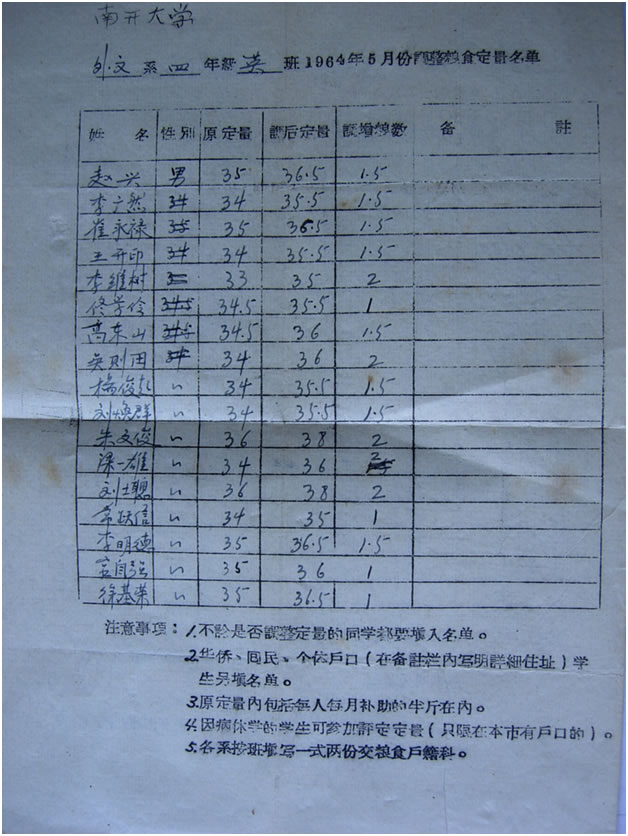 南开大学
外文系四年级英班1964年5月份調整粮食定量名单
姓名 性別 原定量 調后定量 調增粮数 备註
赵兴 男 35 36.5 1.5
李广然 34 35.5 1.5
崔永禄 35 36.5 1.5
王开印 34 35.5 1.5
李维树 33 35 2
佟学伶 34.5 35.5 1
高东山 34.5 36 1.5
吴则田 34 36 2
杨俊 〃 34 35.5 1.5
刘焕群 〃 34 35.5 1.5
朱文俊 〃 36 38 2
梁一雄 〃 34 36 2
刘士聪 〃 36 38 2
常跃信 〃 34 35 1
李明德 〃 35 36.5 1.5
自强 〃 35 36 1
徐基荣 〃 35 36.5 1
注意事項：1.不論是否調整定量的同学都要填入名单。
2.华侨、回民、个体戶口（在备註栏内写明詳細住址）学
生另填名单。
3.原定量内包括每人每月补助的半斤在内。
4.因病休学的学生可参加評定定量（只限在本市有戶口的）。
5.各系按班填写一式两份交粮食戶籍科。